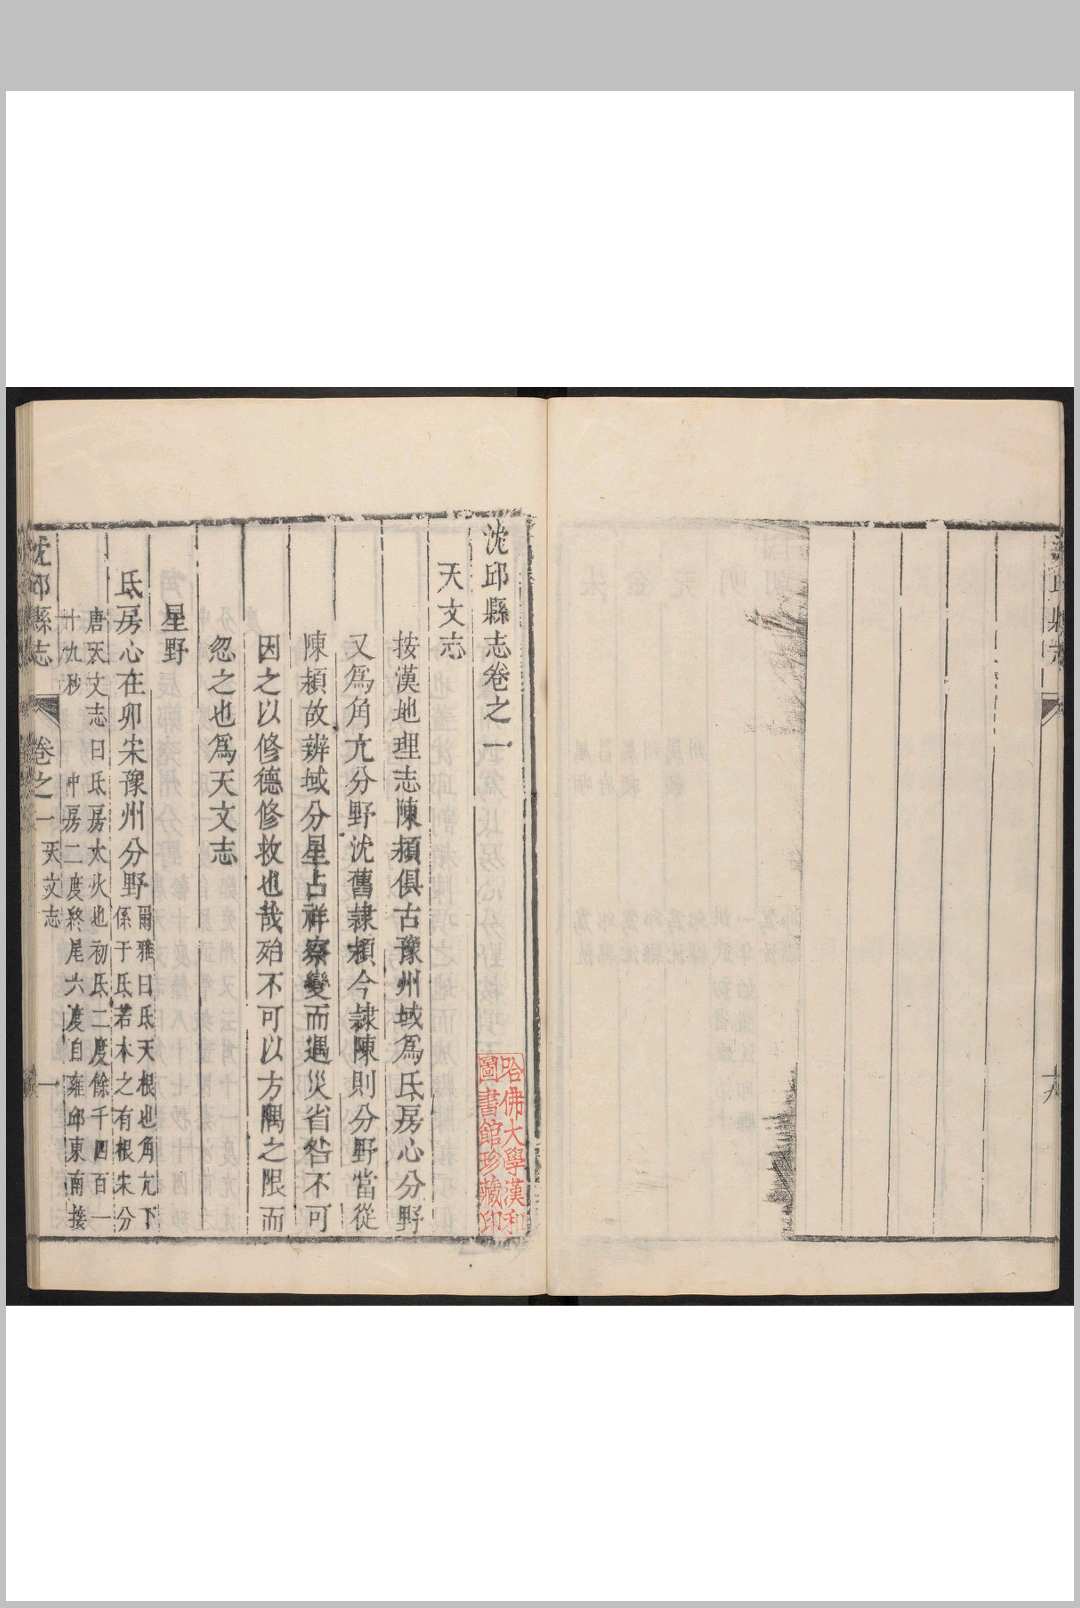 十八
沈邱縣志卷之一
天文志
按漢地理志陳潁俱古豫州域爲氐房心分野
又爲角亢分野沈舊隷潁今隷陳則分野當從
陳潁故辨域分星占祥察變而遇災省咎不可
因之以修德修救也哉殆不可以方隅之限而
忽之也爲天文志
星野
氐房心在卯宋豫州分野
爾雅曰氐天根也角亢下
係于氐若木之有根宋分
唐天文志曰氐房大火也初氐二度餘千四百一
十九秒 中房二度終尾六度自雍邱東南接
沈邱縣志
卷之一
天文志
一
哈佛大學漢和
圖書館珍藏印